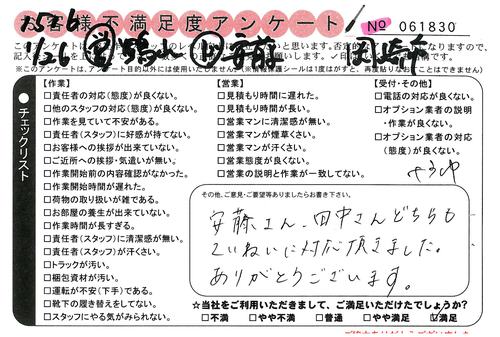 お客様不満足度アンケート
№ 061830
このアンケートは、
(※このアンケートは、アンケート目的以外には使用いたしません)
チェックリスト
【作業】
□責任者の対応(態度)が良くない。
□他のスタッフの対応(態度)が良くない。
□作業を見ていて不安がある。
□責任者(スタッフ)に好感が持てない。
□お客様への挨拶が出来ていない。
□ご近所への挨拶・気遣いが無い。
□作業開始前の内容確認がなかった。
□作業開始時間が遅れた。
□荷物の取り扱いが雑である。
□お部屋の養生が出来ていない。
□作業時間が長すぎる。
□責任者(スタッフ)に清潔感が無い。
□責任者(スタッフ)が汗くさい。
□トラックが汚い。
□梱包資材が汚い。
□運転が不安(下手)である。
□靴下の履き替えをしてない。
□スタッフにやる気がみられない。
【営業】
□見積もり時間に遅れた。
□見積もり時間が長い。
□営業マンに清潔感が無い。
□営業マンが煙草くさい。
□営業マンが汗くさい。
□営業態度が良くない。
□営業の説明と作業が一致してない。
【受付・その他】
□電話の対応が良くない。
□オプション業者の説明
・作業が良くない。
□オプション業者の対応
(態度)が良くない。
その他、ご意見・ご要望等ありましたらお書き下さい。
安藤さん、田中さんどちらも
ていねいに対応頂きました。
ありがとうございます。
☆当社をご利用いただきまして、ご満足いただけたでしょうか?
□不満 □やや不満 □普通 □やや満足 ☑満足